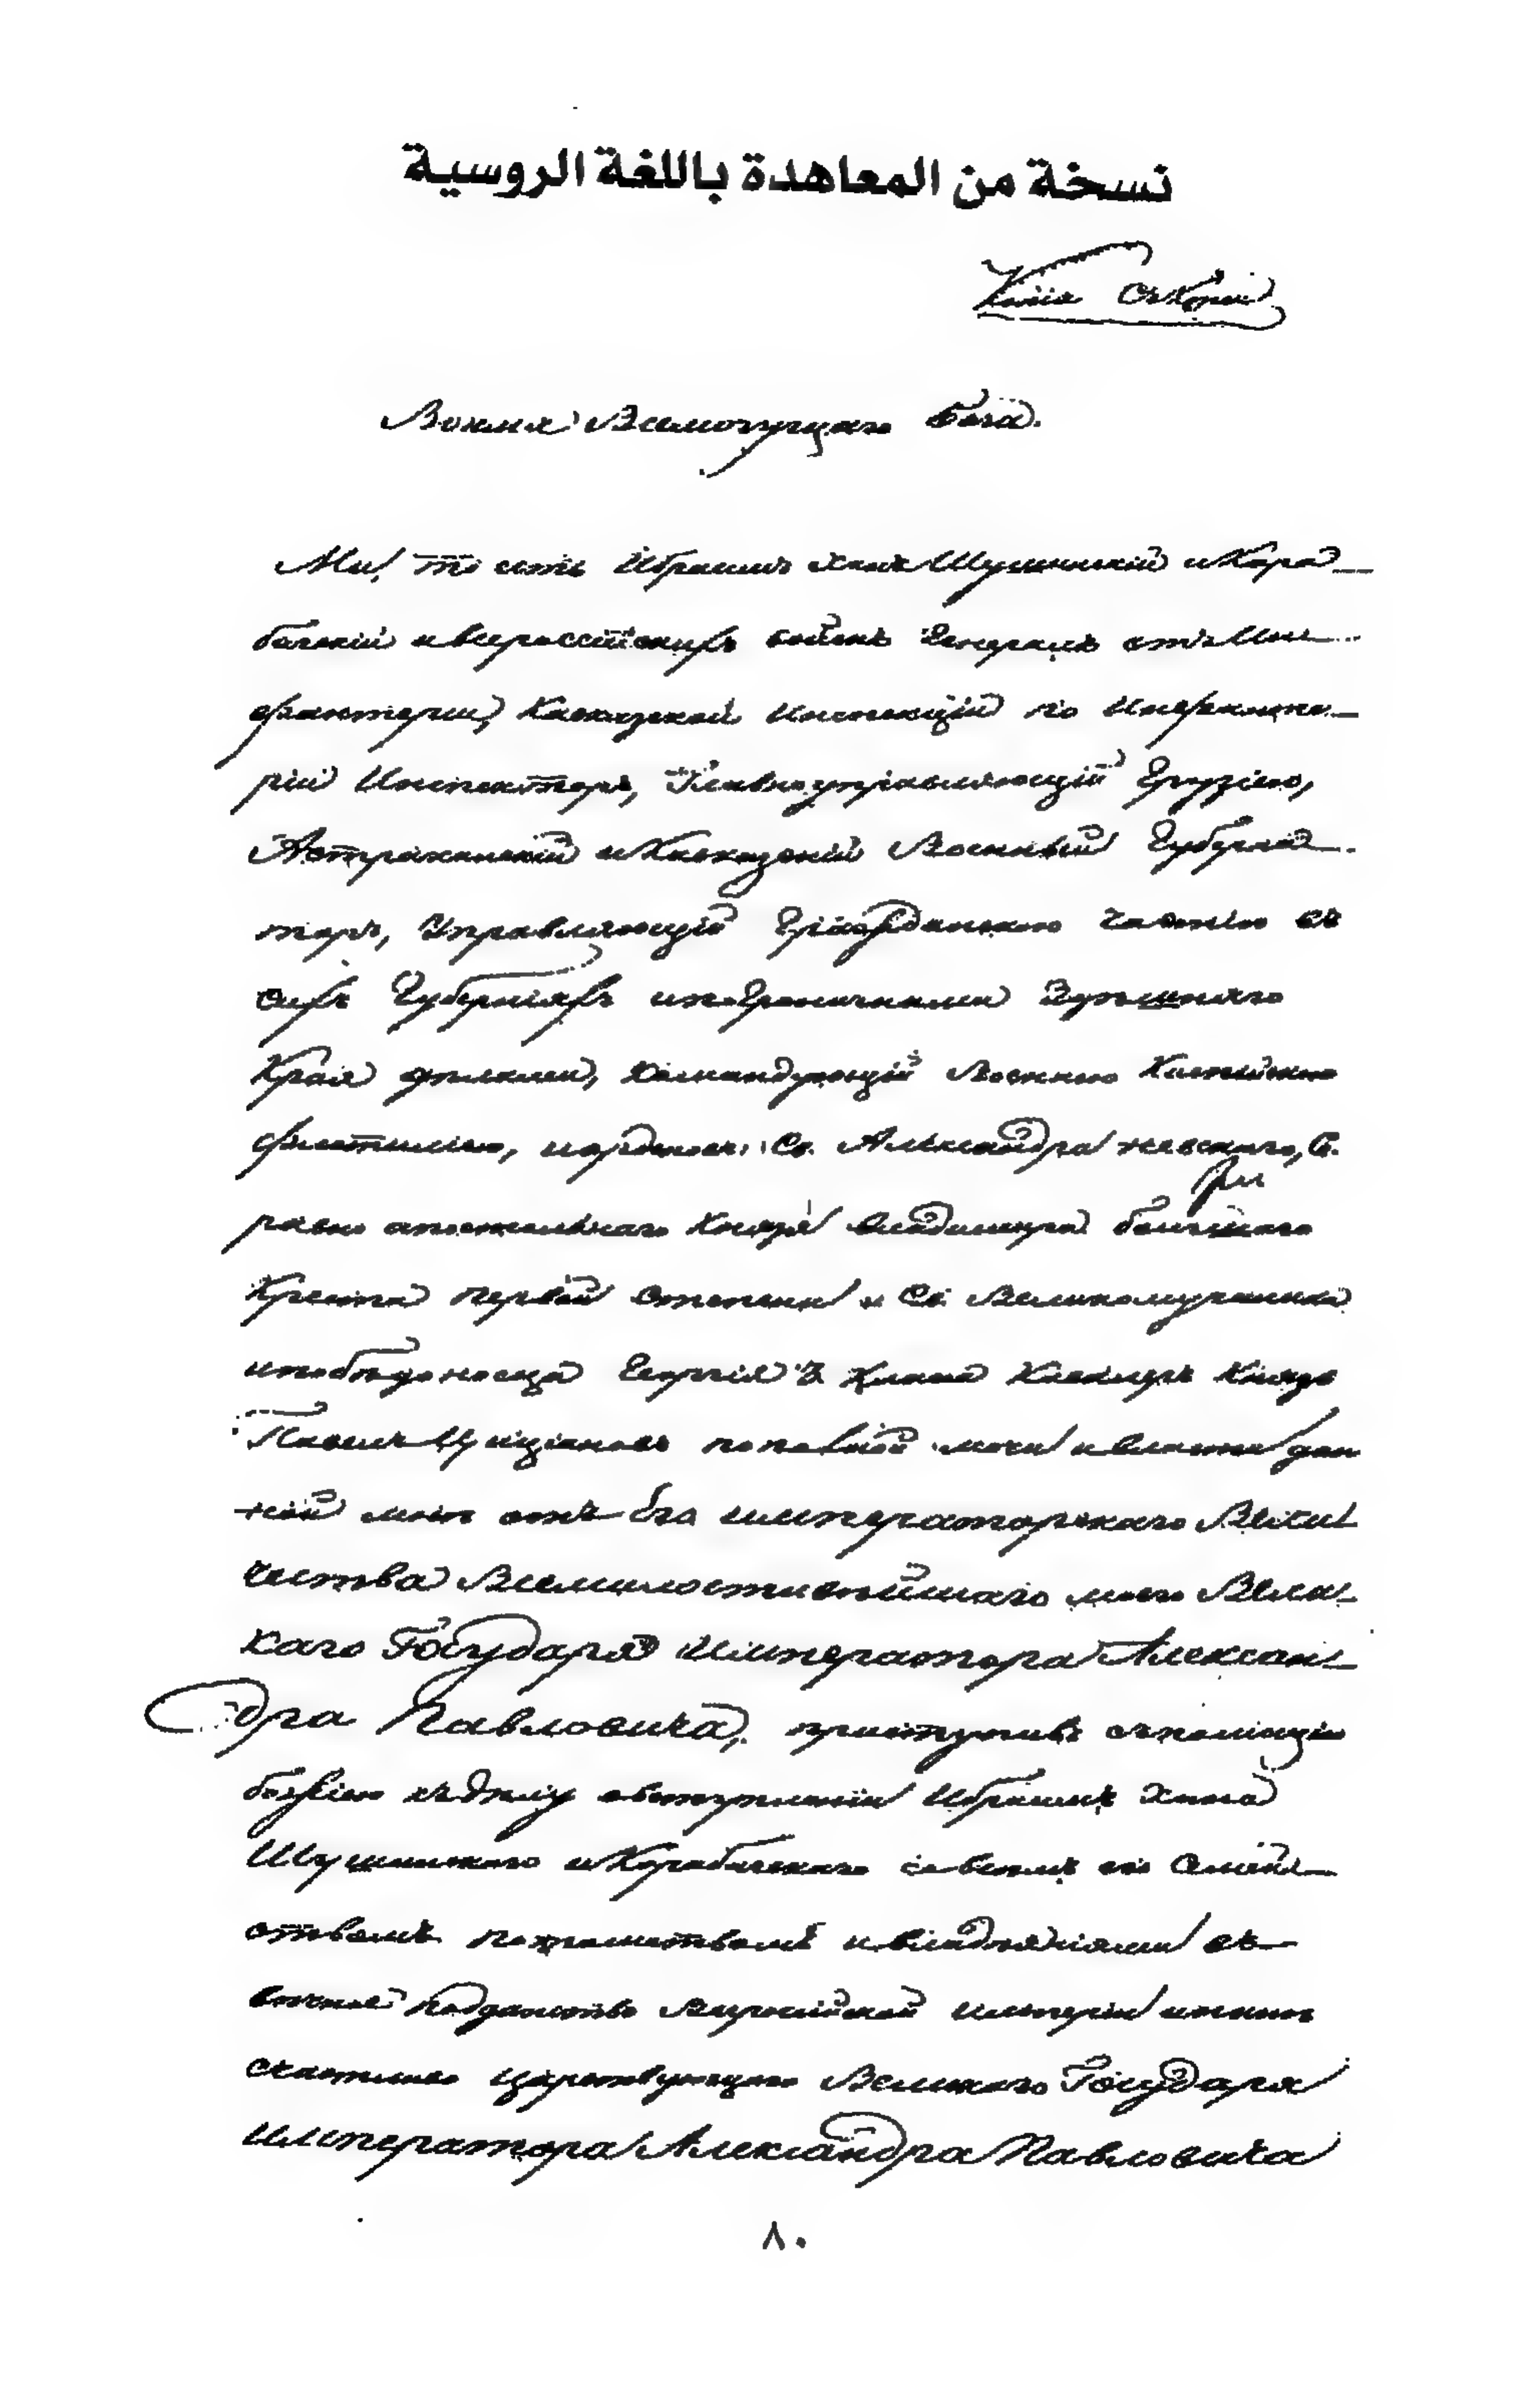 نسخة من المعاهدة باللغة الروسية
Копія съ Копіи
Во имя Всемогущаго Бога.
Мы, то есть Ибраимъ ханъ Шушинскій и Кара
багскій и всероссійскихъ войскъ Генералъ отъ Ин
фантеріи, Кавказской Инспекціи по Инфанте
ріи Инспекторъ, Главноуправляющій Грузіею,
Астраханскій и Кавказскій Военный Губерна
торъ, Управляющій Гражданскою частію въ
сихъ Губерніяхъ и пограничными здешняго
Края дѣлами, Командующій Военною Каспійскою
флотиліею, и орденовъ: Св. Александра невскаго, Св.
равно апостольнаго Князя Владимира большаго
Креста первой степени и Св. Великомученика
и побѣдоносца Георгія 3 класа Кавалеръ Князь
Павелъ Циціановъ по полной мочи и власти дан
ной мнѣ отъ Его императорскаго Вели
чества Всемилостивѣйшаго моего Вели
каго Государя Императора Алексан
дра Павловича, приступивъ съ помощію
божіею къ дѣлу о вступленіи Ибраимъ Хана
Шушинскаго и Карабагскаго со всемъ его Семей
ствомъ потомствомъ и владѣніями въ
вѣчное подданство Всероссійской имперіи и нынѣ
счастливо царствующаго Великаго Государя
Императора Александра Павловича
٨٠